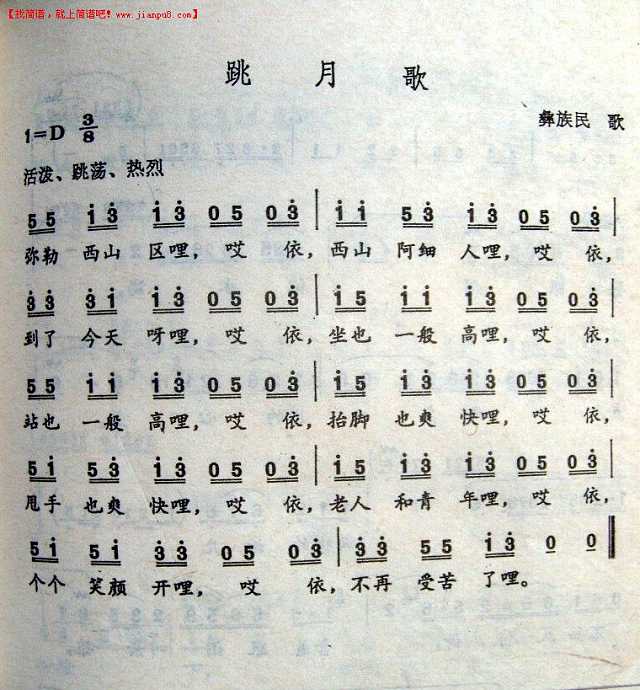 【找简谱，就上简谱吧！www.jianpu8.com】
跳 月 歌
1=D 3/8
彝族民 歌
活泼、跳荡、热烈
5 5 i̇ 3̇ i̇ 3̇ 0 5 0 3̇ | i̇ i̇ 5 3̇ i̇ 3̇ 0 5 0 3̇ |
弥勒 西山 区哩，哎 依，西山 阿细 人哩，哎 依，
3̇ 3̇ 3̇ i̇ i̇ 3̇ 0 5 0 3̇ | i̇ 5 i̇ i̇ i̇ 3̇ 0 5 0 3̇ |
到了 今天 呀哩，哎 依，坐也 一般 高哩，哎 依，
5 5 i̇ i̇ i̇ 3̇ 0 5 0 3̇ | i̇ 5 5 3̇ i̇ 3̇ 0 5 0 3̇ |
站也 一般 高哩，哎 依，抬脚 也爽 快哩，哎 依，
5 i̇ 5 3̇ i̇ 3̇ 0 5 0 3̇ | i̇ 5 i̇ 5 i̇ 3̇ 0 5 0 3̇ |
甩手 也爽 快哩，哎 依，老人 和青 年哩，哎 依，
5 i̇ 5 i̇ 3̇ 3̇ 0 5 0 3̇ | 3̇ 3̇ 5 5 i̇ 3̇ 0 0 ‖
个个 笑颜 开哩，哎 依，不再 受苦 了哩。